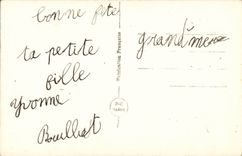 bonne fête
ta petite
fille
Yvonne
Bouilliat
grand'mère
Publication Française